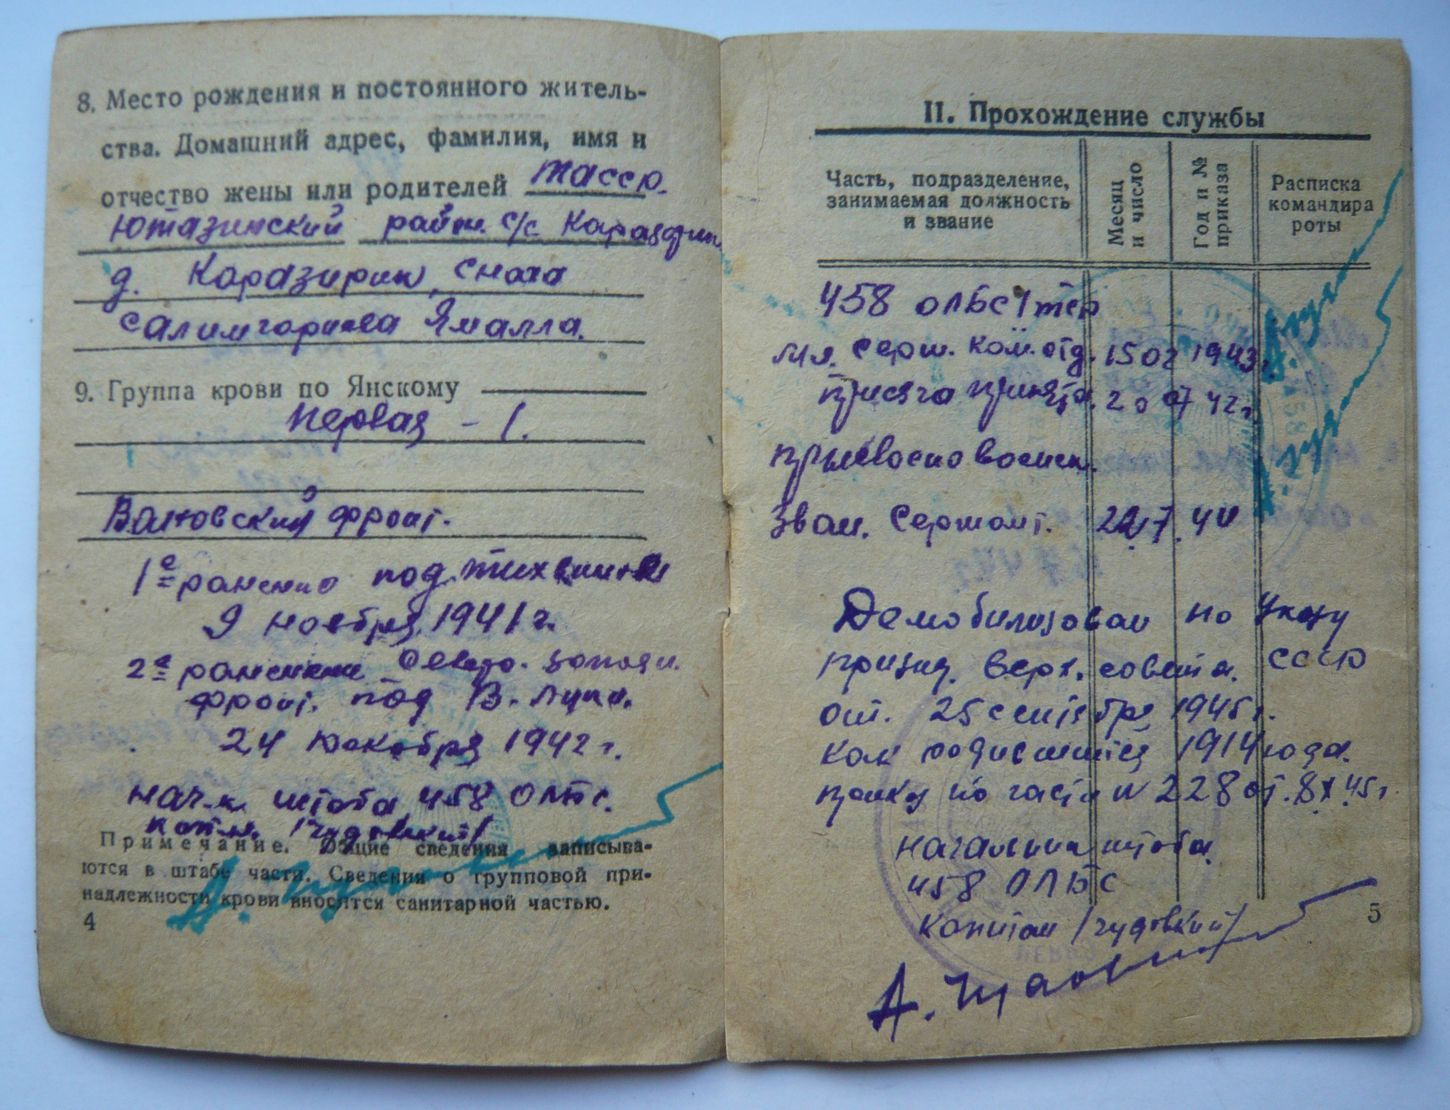 8. Место рождения и постоянного житель-
ства. Домашний адрес, фамилия, имя и
отчество жены или родителей Тасср.
Ютазинский район с/с Каразерик
д. Каразирик, сноха
Салимгориева Ямалла.
9. Группа крови по Янскому
Первая - I.
Волховский фронт.
1е ранение под Тихвином
9 ноября 1941 г.
2е ранение Северо. западн.
фронт. под В. Луки.
24 декабря 1942 г.
нач-к. штаба 458 ОЛБС.
капит. /Чудовский/
Примечание. Общие сведения записыва-
ются в штабе части. Сведения о групповой при-
надлежности крови вносятся санитарной частью.
4
II. Прохождение службы
Часть, подразделение, занимаемая должность и звание
Месяц и число
Год и № приказа
Расписка командира роты
458 ОЛБС
Мл. Серж. Ком. отд. 15 02 1943 г.
присяга принята. 20 07 42 г.
присвоено воинск.
зван. Сержант. 22.7. 44
Демобилизован по Указу
призид. Верх. совета. СССР
от. 25 сентября 1945 г.
как родившийся 1914 года.
приказ по части N 228 от. 8 X 45 г.
начальник штаба
458 ОЛБС
Капитан /Чудовский/
5